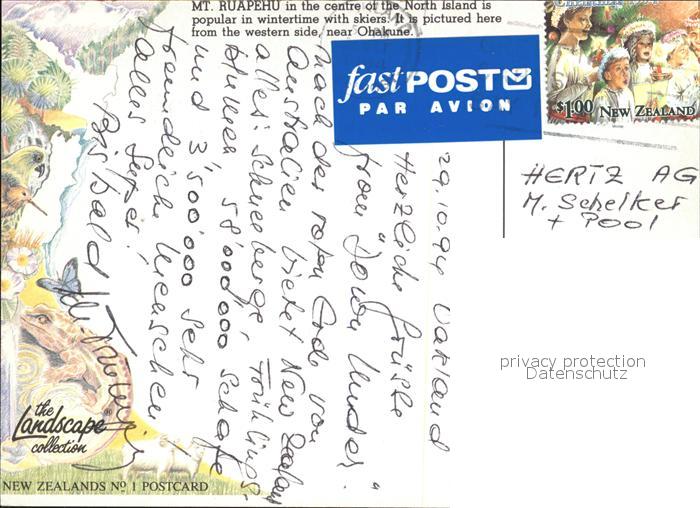 MT. RUAPEHU in the centre of the North Island is
popular in wintertime with skiers. It is pictured here
from the western side, near Ohakune.
fastPOST
PAR AVION
$1.00 NEW ZEALAND
29.10.94
Herzliche Grüsse
from "Down Under."
Nach der roten Erde von
Australien bietet New Zealand
alles: Schneeberge, Frühlings-
blumen, 58'000'000 Schafe
und 3'500'000 sehr
freundliche Menschen!
Alles Super!
Bis bald
HERTZ AG
M. Schelker
+ Pool
privacy protection
Datenschutz
the
Landscape®
collection
NEW ZEALANDS No 1 POSTCARD